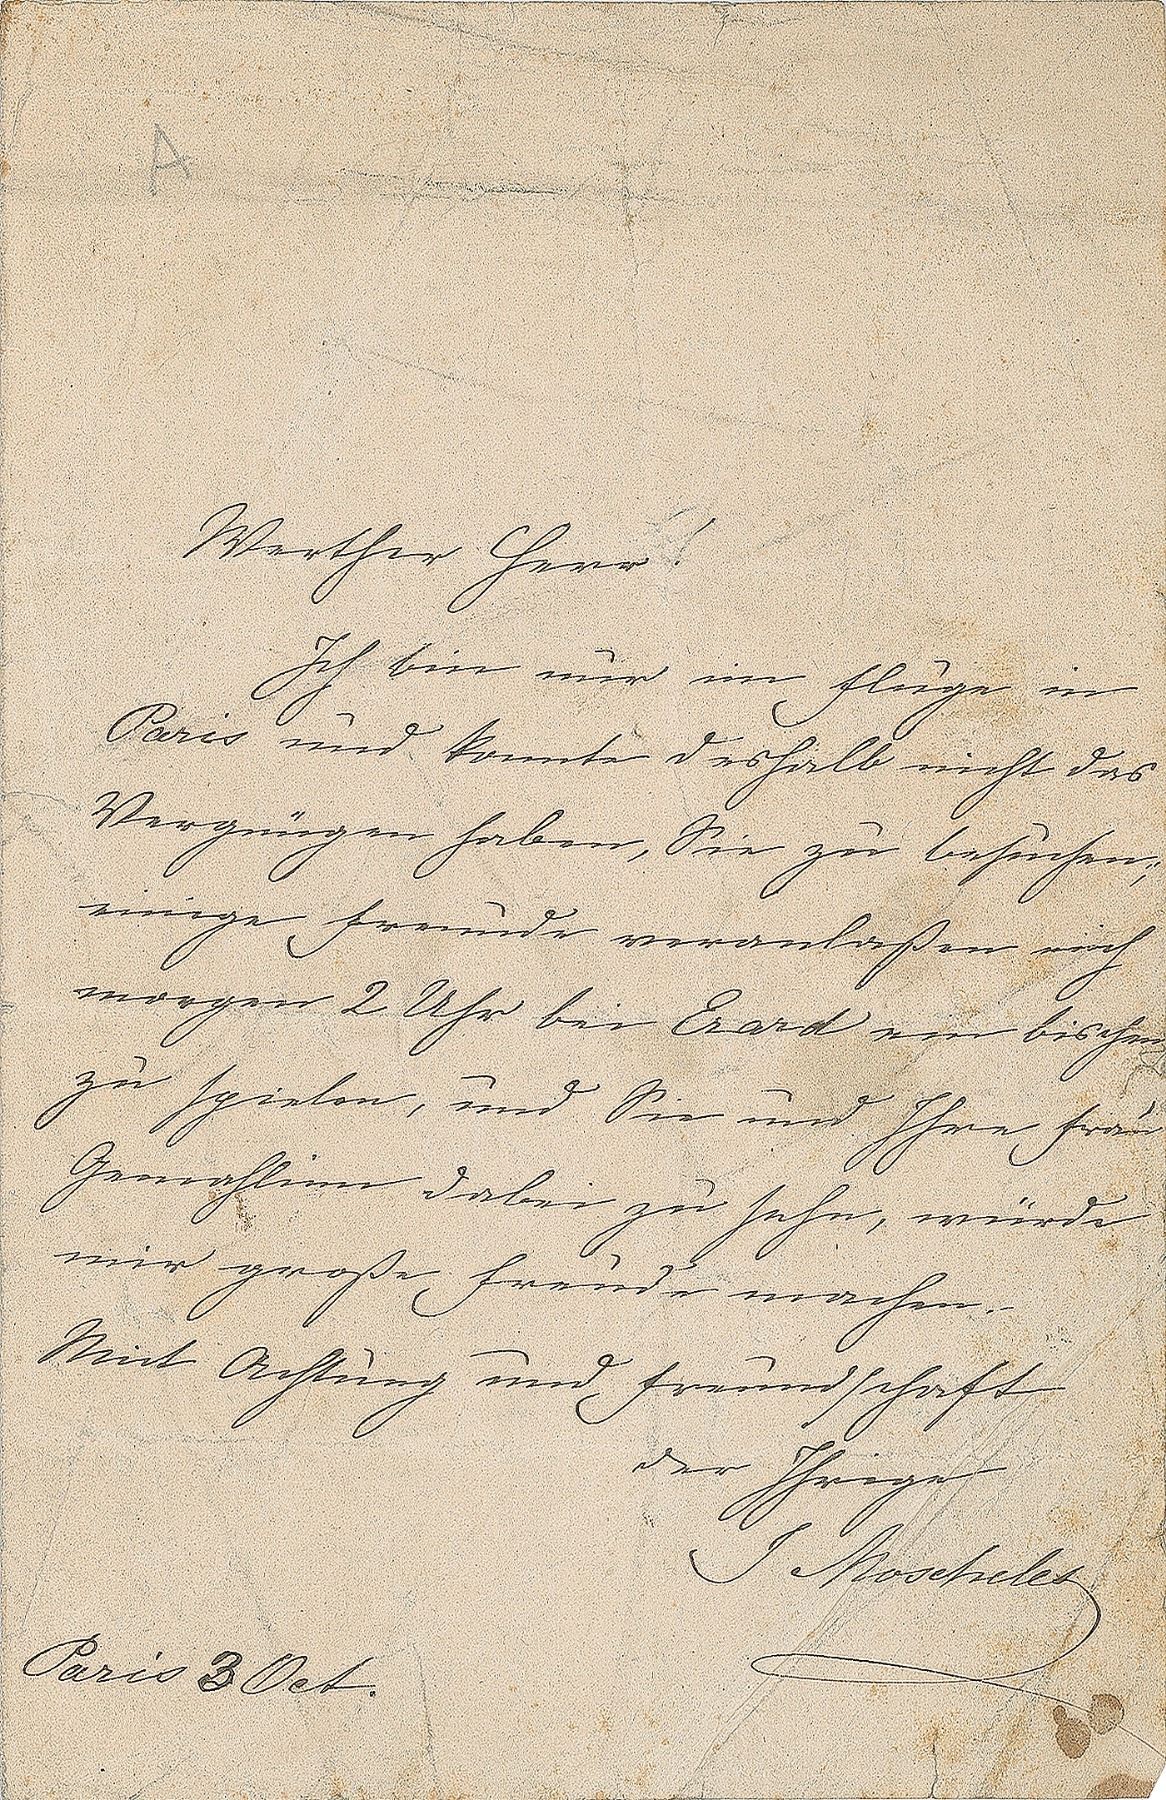 A
Werther Herr!
Ich bin nur im Fluge in
Paris und konnte deshalb nicht das
Vergnügen haben, Sie zu besuchen;
einige Freunde veranlaßen mich
morgen 2 Uhr bei Erard ein bischen
zu spielen, und Sie und Ihre Frau
Gemahlinn dabei zu sehn, würde
mir große Freude machen.
Mit Achtung und Freundschaft
der Ihrige
J Moscheles
Paris 3 Oct.